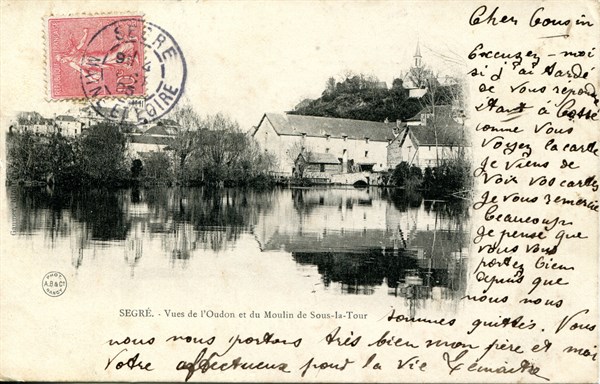 SEGRÉ
MAINE ET LOIRE
Cher Cousin
Excusez-moi
si j'ai tardé
de vous répondre
étant à
comme vous
voyez la carte
je viens de
voir vos cartes
je vous remercie
beaucoup
je pense que
vous vous
portez bien
depuis que
nous nous
sommes quittés. Vous
nous nous portons très bien mon père et moi
Votre affectueux pour la vie Lemaitre
PHOT.
A.B & Cie
NANCY
SEGRÉ. - Vues de l'Oudon et du Moulin de Sous-la-Tour